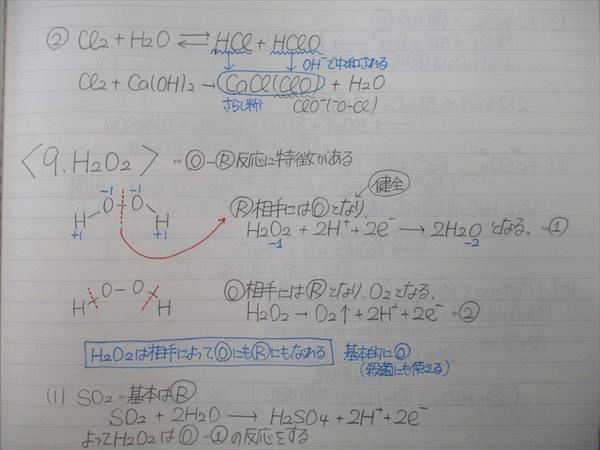 ② Cl₂ + H₂O ⇄ HCl + HClO
OH⁻で中和される
Cl₂ + Ca(OH)₂ → CaCl(ClO) + H₂O
さらし粉 ClO⁻(⁻O-Cl)
〈9. H₂O₂〉 … Ⓞ-Ⓡ反応に特徴がある
-1 -1
H O O H
+1 +1
健全
Ⓡ相手にはⓄとなり、
H₂O₂ + 2H⁺ + 2e⁻ → 2H₂O となる。…①
-1 -2
H O - O H
Ⓞ相手にはⓇとなり、O₂となる。
H₂O₂ → O₂↑ + 2H⁺ + 2e⁻ …②
H₂O₂は相手によってⓄにもⓇにもなれる 基本的にⓄ
(殺菌にも使える)
(1) SO₂ … 基本はⓇ
SO₂ + 2H₂O → H₂SO₄ + 2H⁺ + 2e⁻
よってH₂O₂はⓄ…①の反応をする